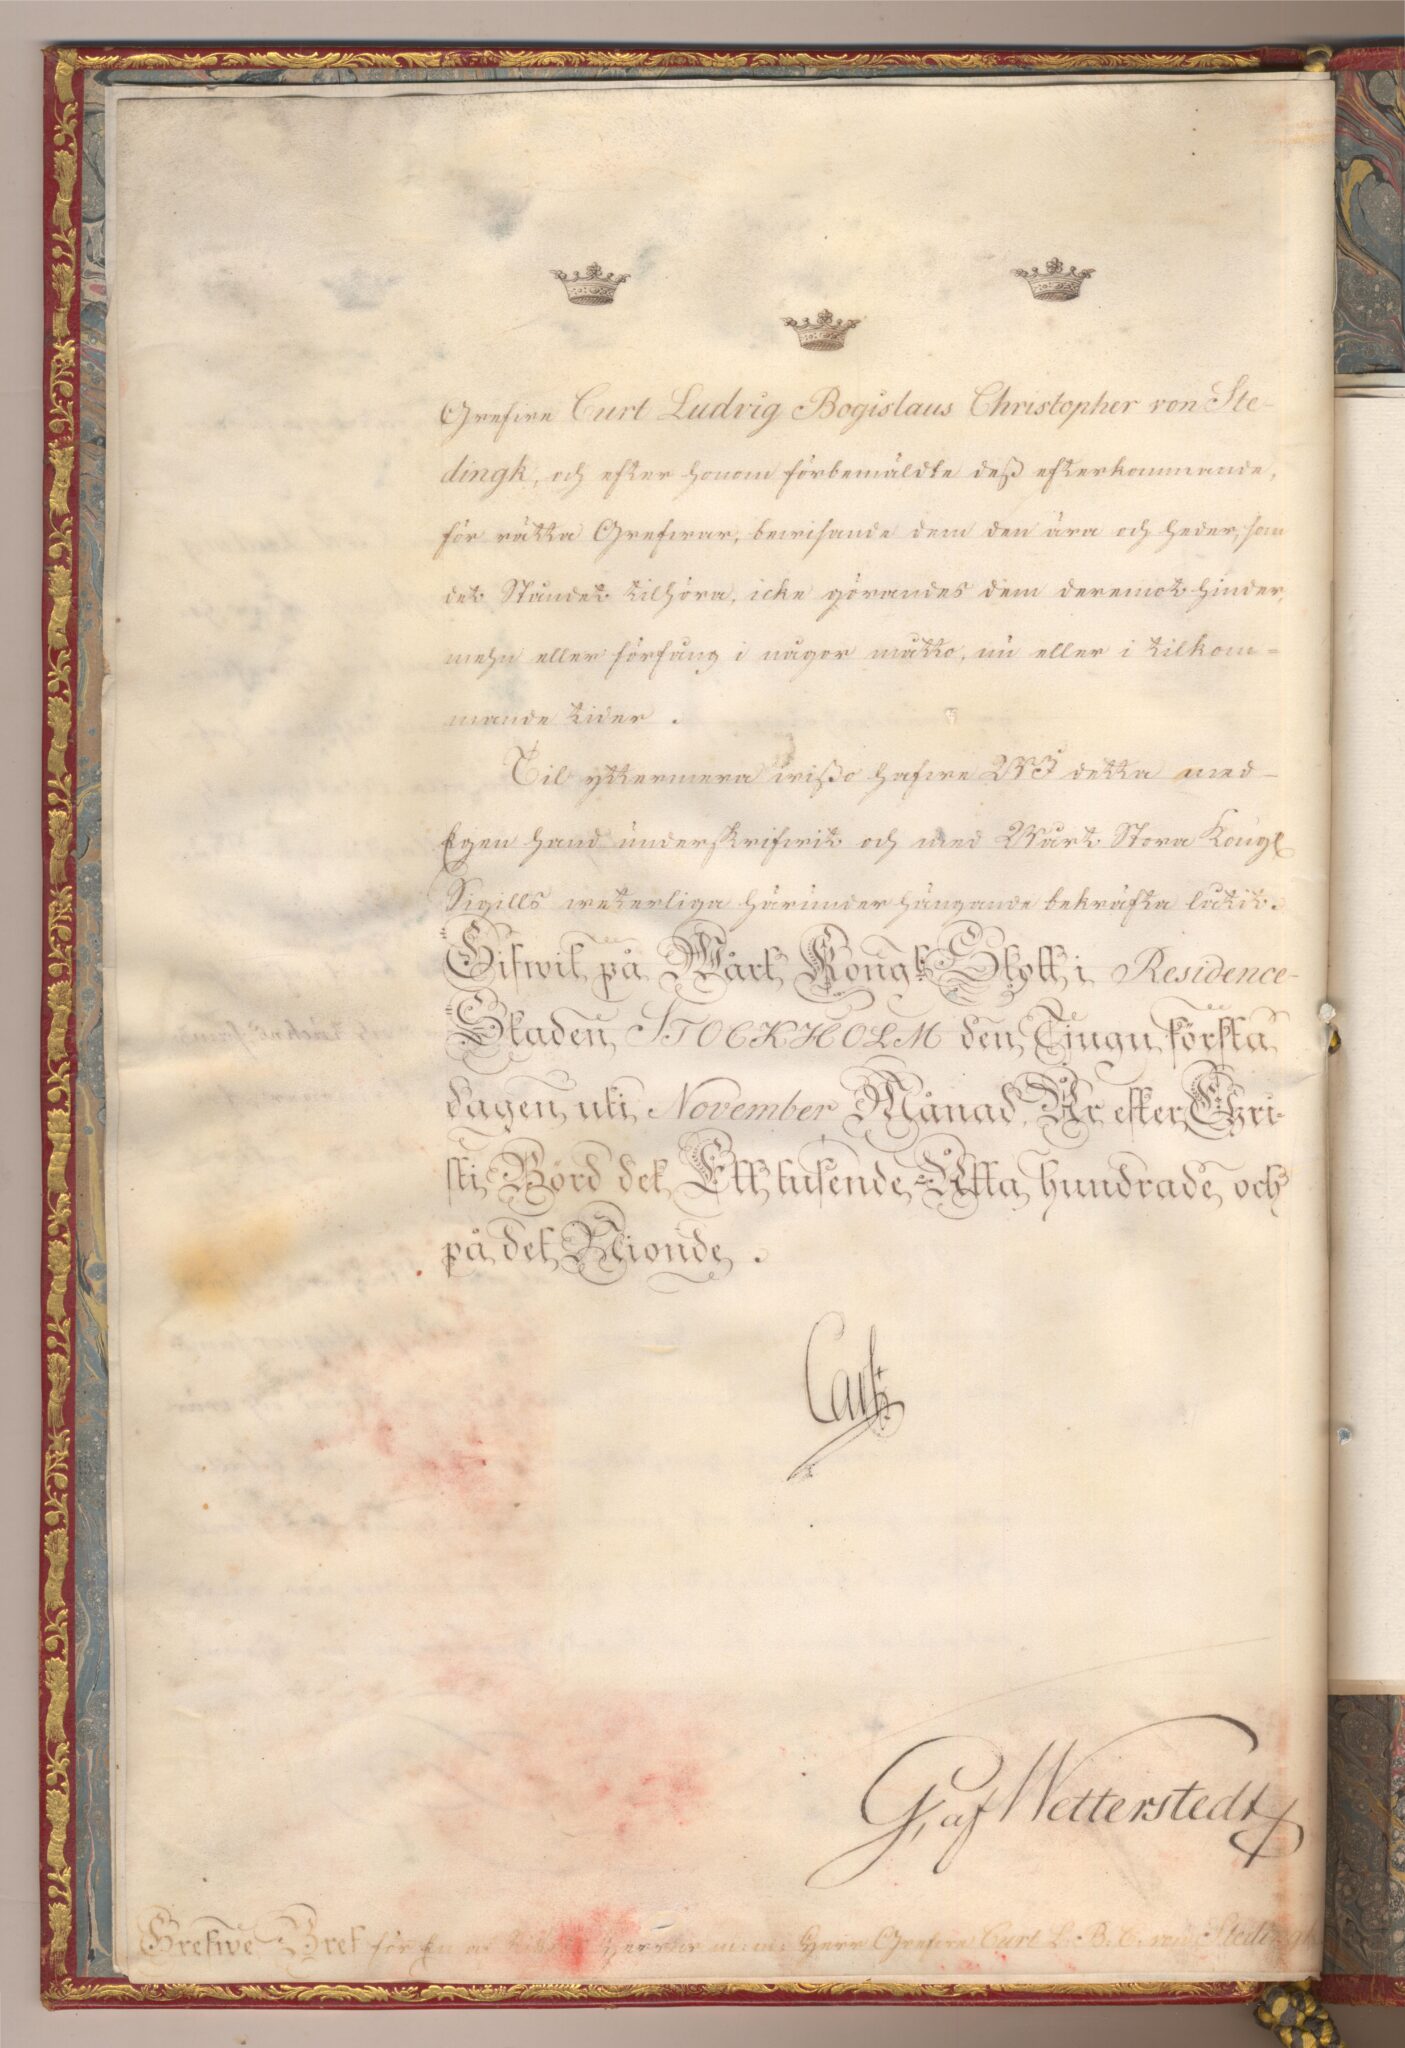 Grefwe Curt Ludvig Bogislaus Christopher von Ste-
dingk, och efter honom förbemäldte deß efterkommande,
för rätta Grefwar, bewisande dem den ära och heder, som
det Ståndet tilhöra, icke görandes dem deremot hinder,
mehn eller förfång i någor måtto, nu eller i tilkom=
mande tider.
Til yttermera wißo hafwe WI detta med
Egen hand underskrifwit och med Wårt Stora Kongl
Sigills weterliga härunder hängande bekräfta låtit.
Gifwit på Wårt Kongl Slott i Residence-
Staden STOCKHOLM den Tjugu första
dagen uti November Månad, År efter Chri-
sti Börd det Ett tusende Åtta hundrade och
på det Nionde.
Carl
G, af Wetterstedt
Grefwe Bref för En af Herr Grefwe Curt L. B. C. von Stedingk